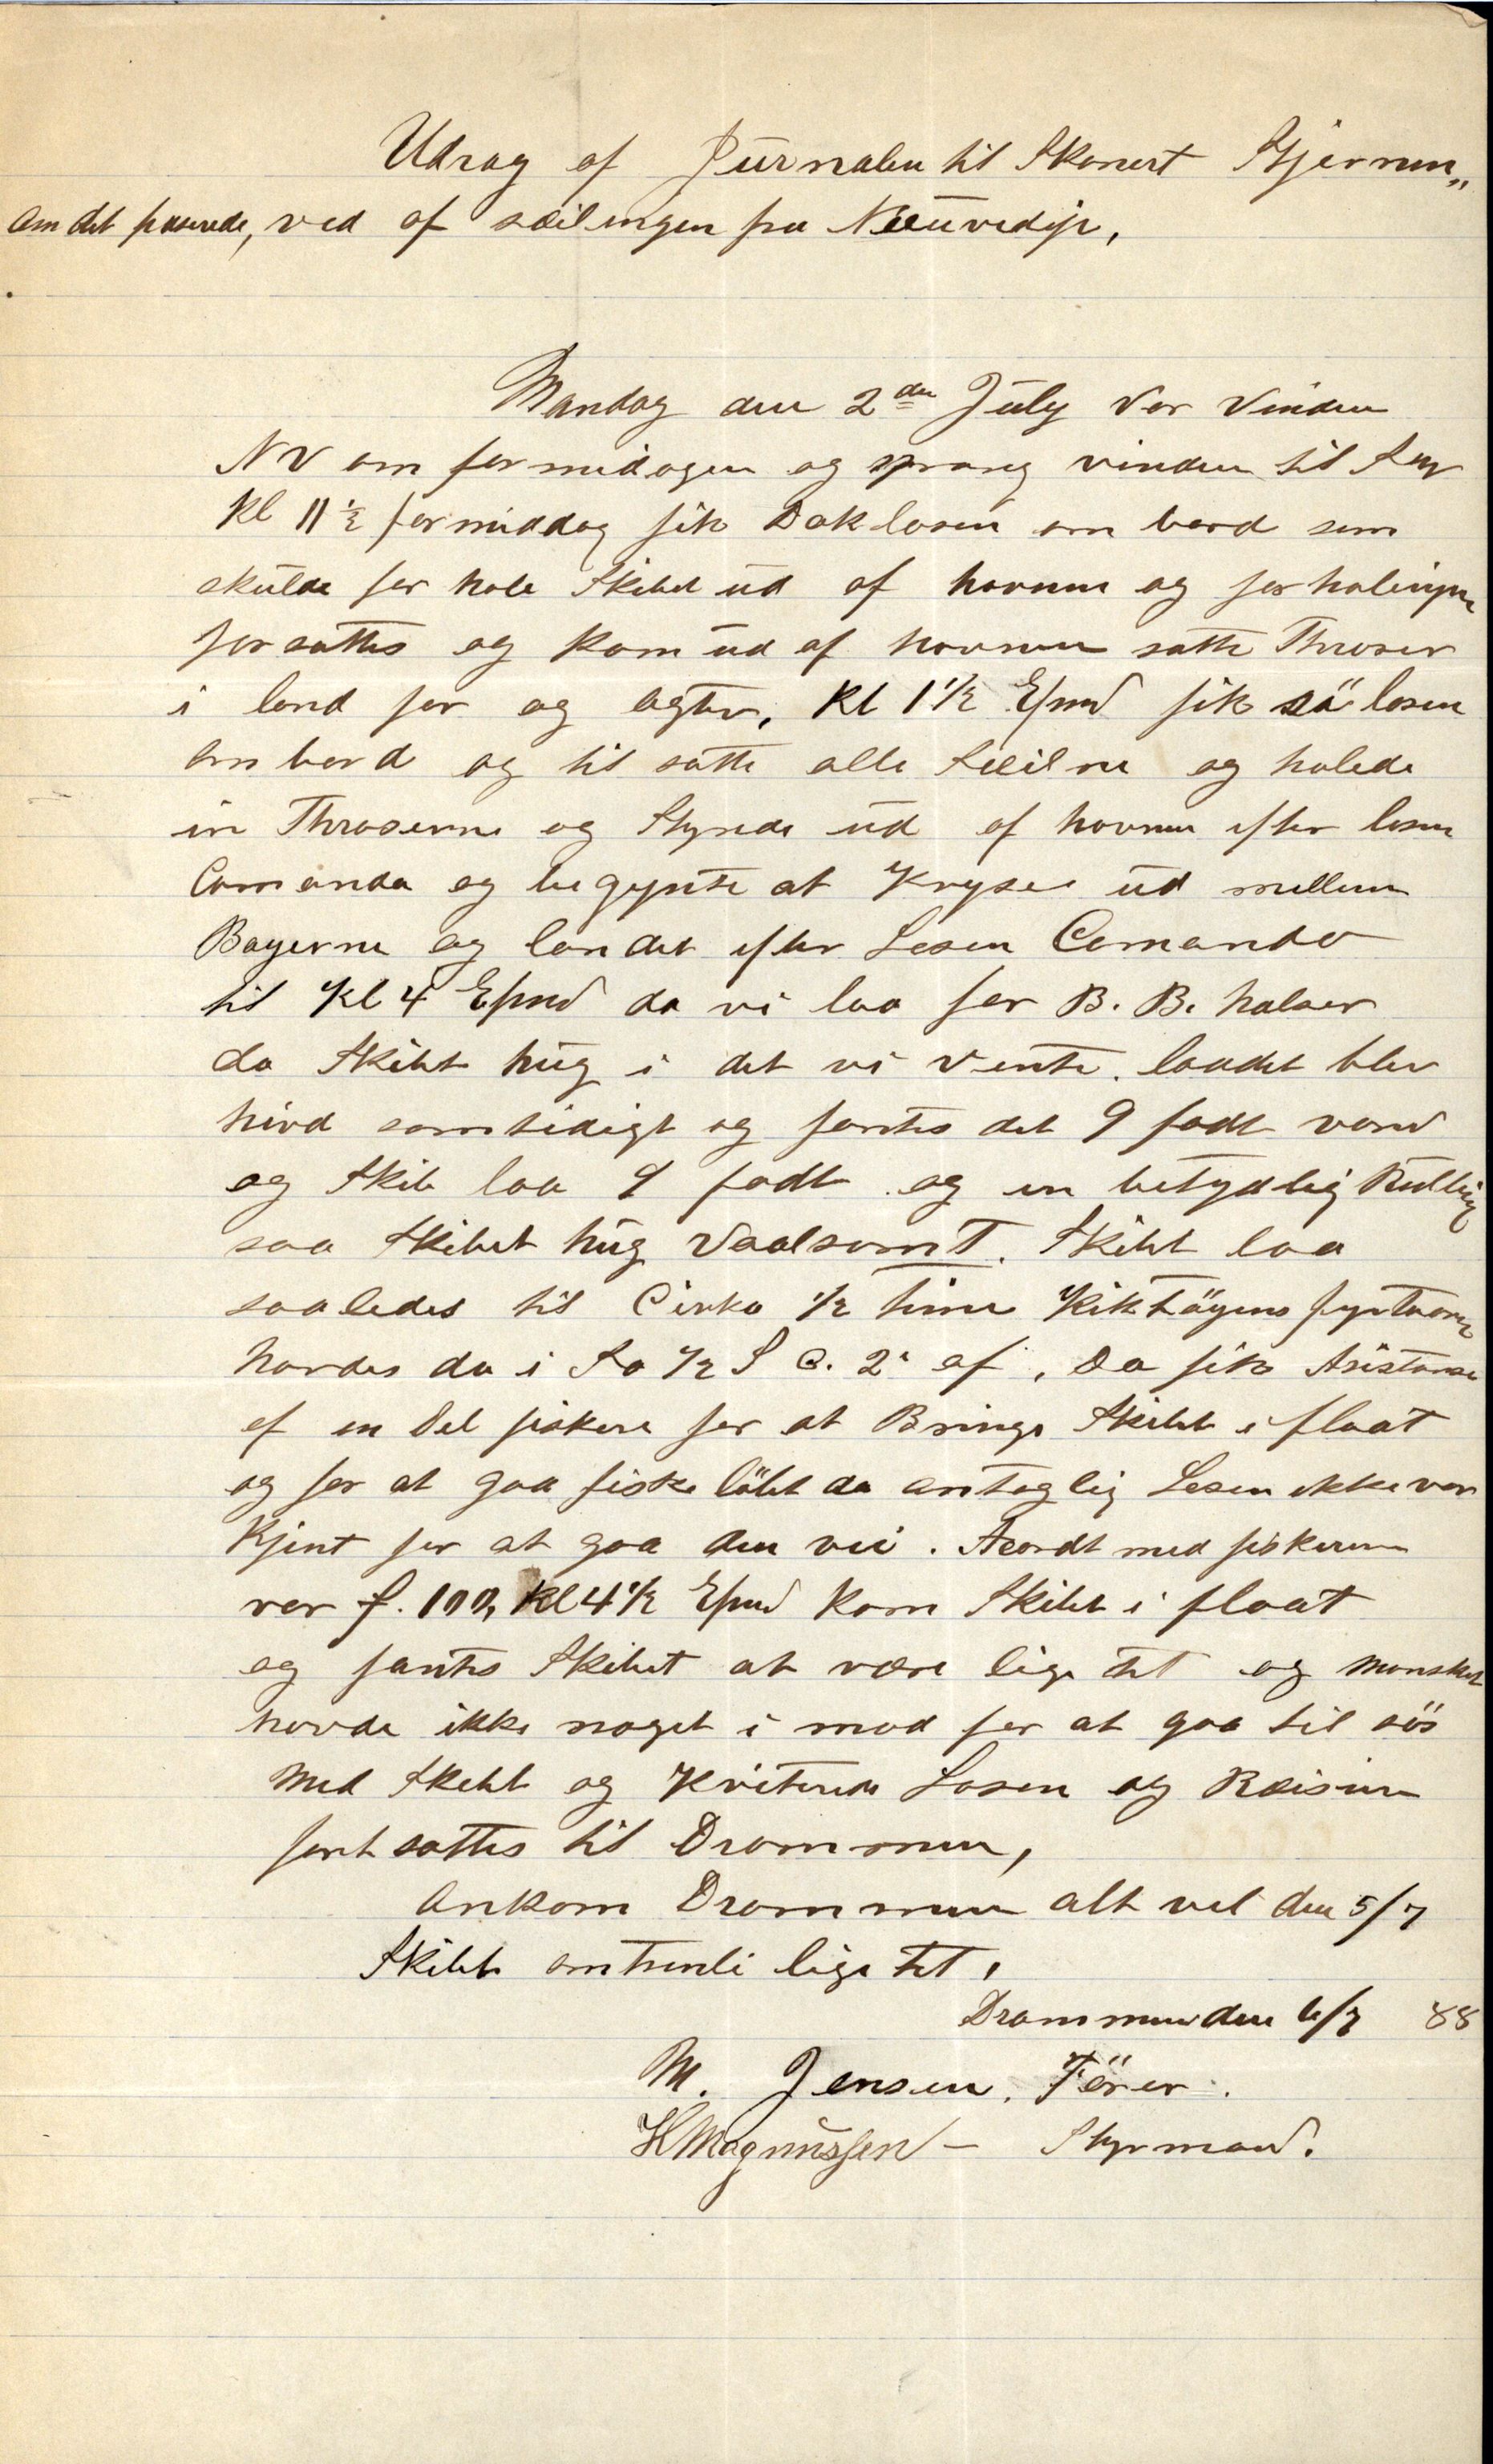 Udrag af Jurnalen til Skonert Stjernen„
om det paserede, ved af seilingen fra Neeuvedip,
Mandag den 2den July var Vinden
NV om formidagen og sprang vinden til
Kl 11½ formiddag fik Doklosen om bord som
skulde for hale Skibet ud af havnen og forhalingen
forsattes og kom ud af havnen satte Throser
i land for og agter, Kl 1½ Efmd fik sölosen
om bord og til satte alle Seilne og halede
in Throserne og Styrede ud af havnen efter losen
Comando og begynte at Krysee ud mellem
Bøyerne og landet efter Losen Comando
til Kl 4 Efmd da vi laa for B. B. halser
da Skibet hug i det vi vente. loddet blev
hivd samtidigt og fantes det 9 fodt vand
og Skib laa 9 fodt og en betydelig Kulling
saa Skibet hug VoolsomT. Skibet laa
saaledes til Cirka ½ time Kiktöyens fyrtaarn
havdes da i So ½ S C. 2' af, Da fik Asistanse
af en Del fiskere for at Bringe Skibet i flaat
og for at gaa fiske löbet da antaglig Losen ikke var
Kjent for at gaa den vei. Acordt med fiskerne
var f. 100, Kl 4½ Efmd Kom Skibet i flaat
og fantes Skibet at være lige tet og Manskabet
havde ikke noget i mod for at gaa til sös
Med Skibet og Kviterede Losen og Reisen
fort sattes til Drammen,
Ankom Drammen alt vel den 5/7
Skibet omtrenli lige tet,
Drammen den 6/7 88
M. Jensen. Förer.
HMagnussen - Styrmand.